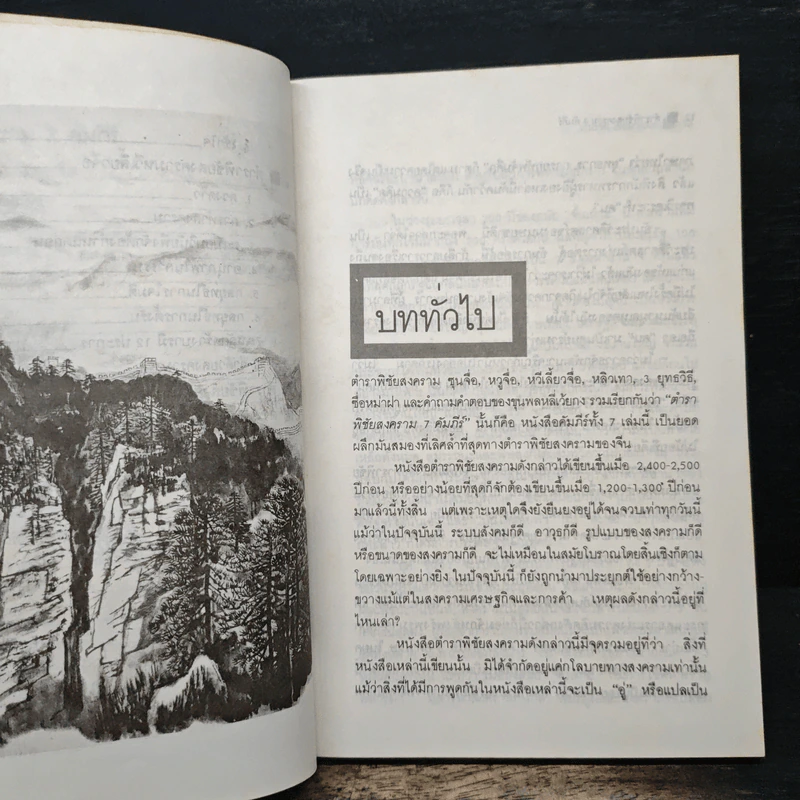 บททั่วไป
ตำราพิชัยสงคราม ซุนจื่อ, หวูจื่อ, หวีเลี้ยวจื่อ, หลิวเทา, 3 ยุทธวิธี,
ซื่อหม่าฝ่า และคำถามคำตอบของขุนพลหลี่เว้ยกง รวมเรียกกันว่า “ตำรา
พิชัยสงคราม 7 คัมภีร์” นั้นก็คือ หนังสือคัมภีร์ทั้ง 7 เล่มนี้ เป็นยอด
ผลึกมันสมองที่เลิศล้ำที่สุดทางตำราพิชัยสงครามของจีน
หนังสือตำราพิชัยสงครามดังกล่าวได้เขียนขึ้นเมื่อ 2,400-2,500
ปีก่อน หรืออย่างน้อยที่สุดก็จักต้องเขียนขึ้นเมื่อ 1,200-1,300 ปีก่อน
มาแล้วนี้ทั้งสิ้น แต่เพราะเหตุใดจึงยังยืนยงอยู่ได้จนจวบเท่าทุกวันนี้
แม้ว่าในปัจจุบันนี้ ระบบสังคมก็ดี อาวุธก็ดี รูปแบบของสงครามก็ดี
หรือขนาดของสงครามก็ดี จะไม่เหมือนในสมัยโบราณโดยสิ้นเชิงก็ตาม
โดยเฉพาะอย่างยิ่ง ในปัจจุบันนี้ ก็ยังถูกนำมาประยุกต์ใช้อย่างกว้าง-
ขวางแม้แต่ในสงครามเศรษฐกิจและการค้า เหตุผลดังกล่าวนี้อยู่ที่
ไหนเล่า?
หนังสือตำราพิชัยสงครามดังกล่าวนี้มีจุดรวมอยู่ที่ว่า สิ่งที่
หนังสือเหล่านี้เขียนนั้น มิได้จำกัดอยู่แค่กโลบายทางสงครามเท่านั้น
แม้ว่าสิ่งที่ได้มีการพูดกันในหนังสือเหล่านี้จะเป็น “อู่” หรือแปลเป็น